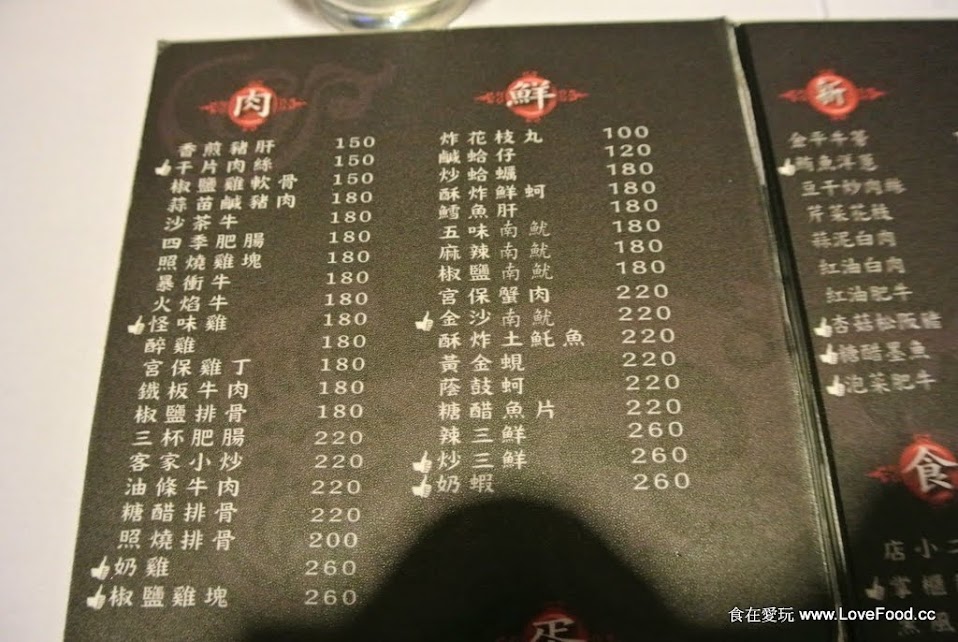 肉
香煎豬肝 150
干片肉絲 150
椒鹽雞軟骨 150
蒜苗鹹豬肉 180
沙茶牛 180
四季肥腸 180
照燒雞塊 180
暴衝牛 180
火焰牛 180
怪味雞 180
醉雞 180
宮保雞丁 180
鐵板牛肉 180
椒鹽排骨 180
三杯肥腸 220
客家小炒 220
油條牛肉 220
糖醋排骨 220
照燒排骨 200
奶雞 260
椒鹽雞塊 260
鮮
炸花枝丸 100
鹹蛤仔 120
炒蛤蠣 180
酥炸鮮蚵 180
鱈魚肝 180
五味南魷 180
麻辣南魷 180
椒鹽南魷 180
宮保蟹肉 220
金沙南魷 220
酥炸土魠魚 220
黃金蜆 220
蔭鼓蚵 220
糖醋魚片 220
辣三鮮 260
炒三鮮 260
奶蝦 260
蛋
新
金平牛蒡
鮪魚洋蔥
豆干炒肉絲
芹菜花枝
蒜泥白肉
紅油白肉
紅油肥牛
杏菇松阪豬
糖醋墨魚
泡菜肥牛
食
店小二
掌櫃
風
食在愛玩 www.LoveFood.cc